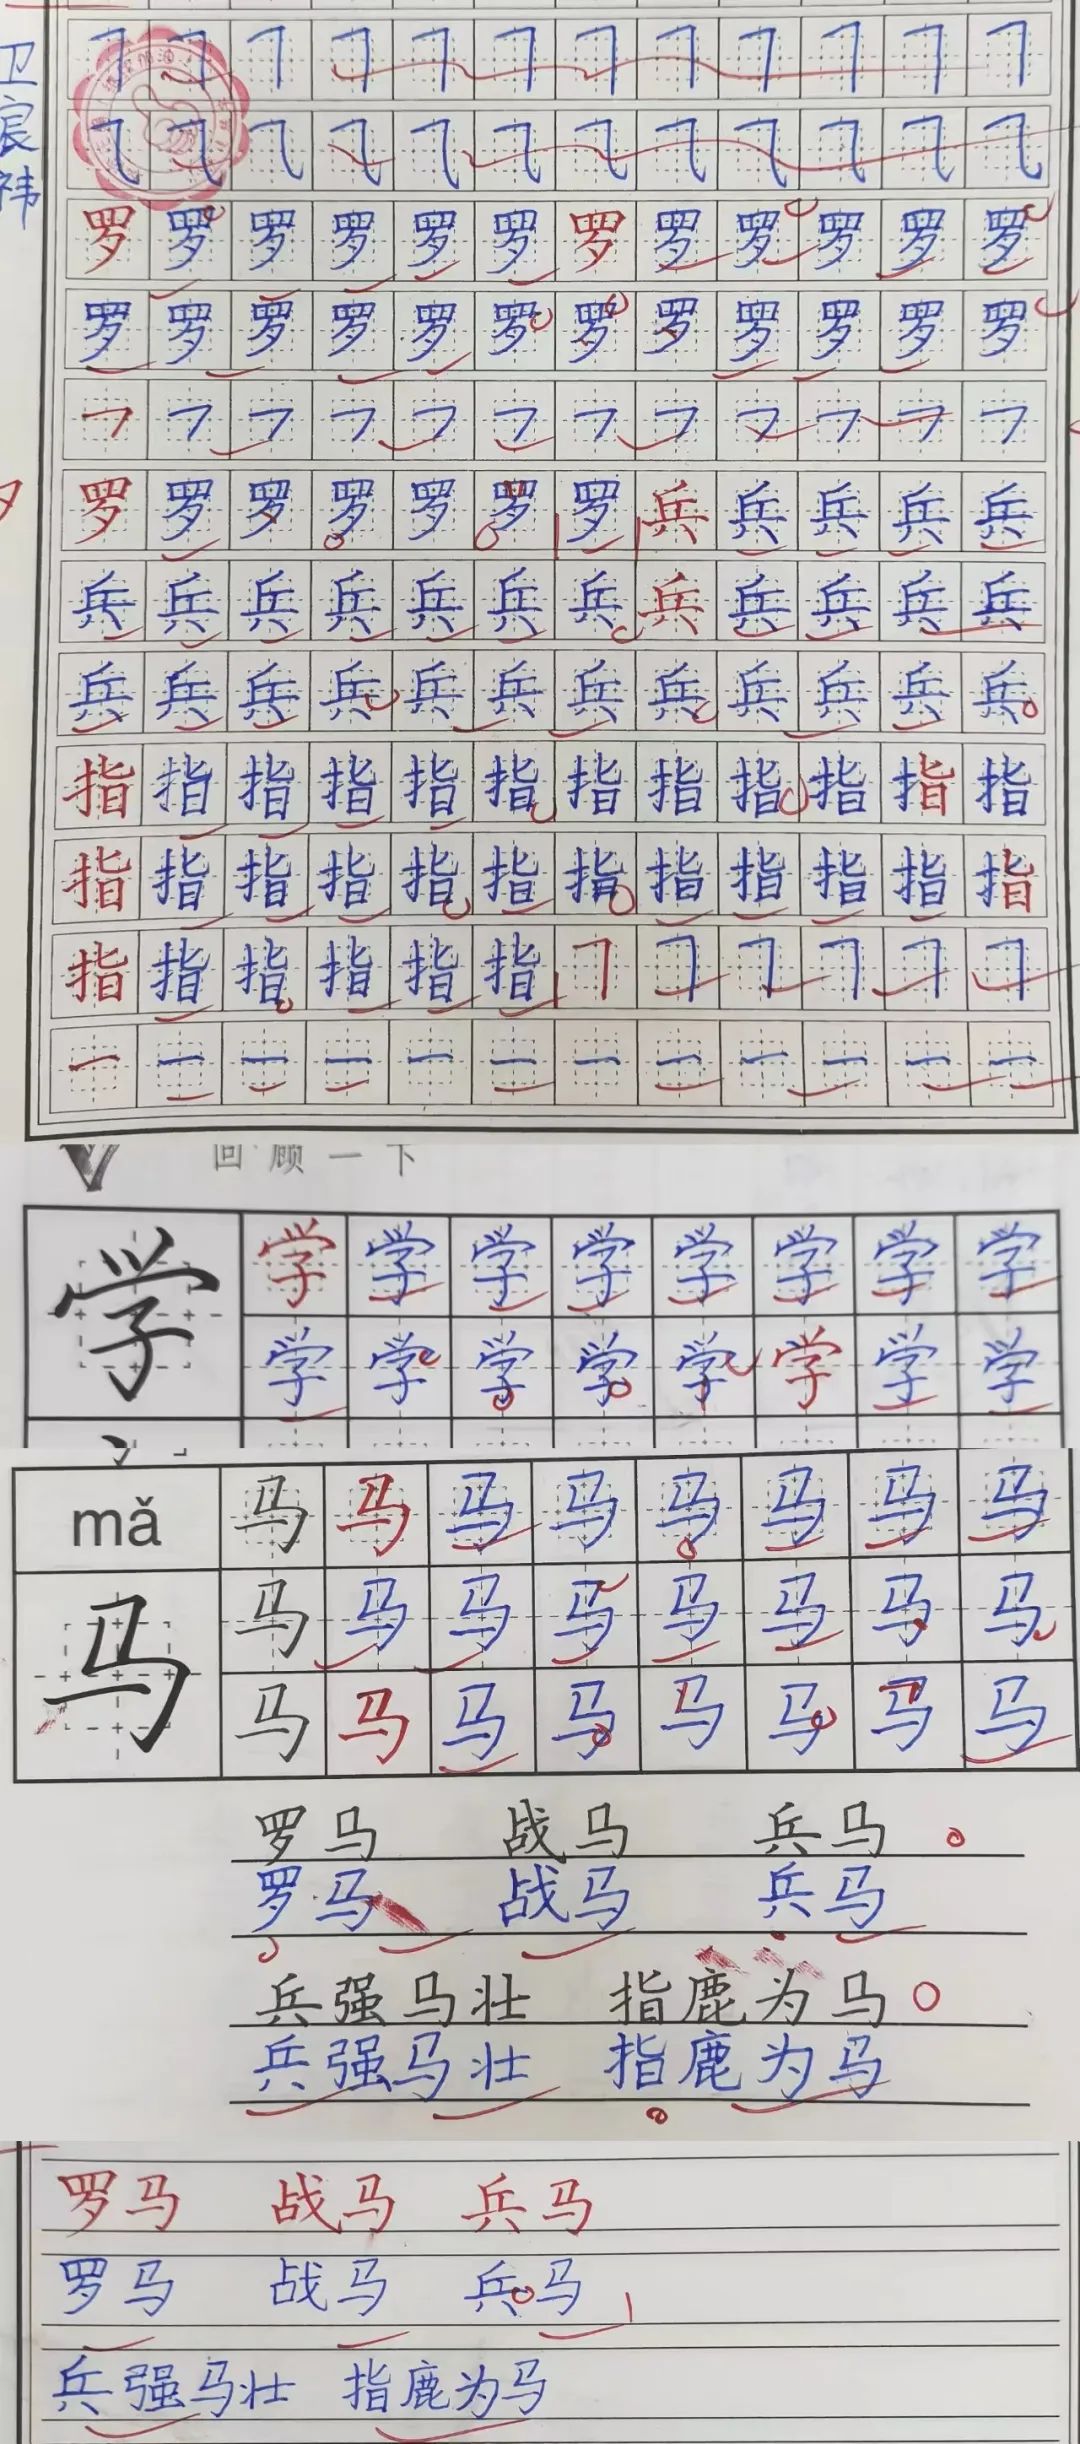 卫宸祎
罗罗罗罗罗罗罗罗罗罗罗罗
罗罗罗罗罗罗罗罗罗罗罗罗
罗罗罗罗罗罗罗兵兵兵兵兵
兵兵兵兵兵兵兵兵兵兵兵兵
兵兵兵兵兵兵兵兵兵兵兵兵
指指指指指指指指指指指指
指指指指指指指指指指指指
指指指指指指
一一一一一一一一一一一一
回顾一下
学 学学学学学学学学
学学学学学学学学
mǎ 马马马马马马马马
马 马马马马马马马马
马马马马马马马马
罗马 战马 兵马
罗马 战马 兵马
兵强马壮 指鹿为马
兵强马壮 指鹿为马
罗马 战马 兵马
罗马 战马 兵马
兵强马壮 指鹿为马